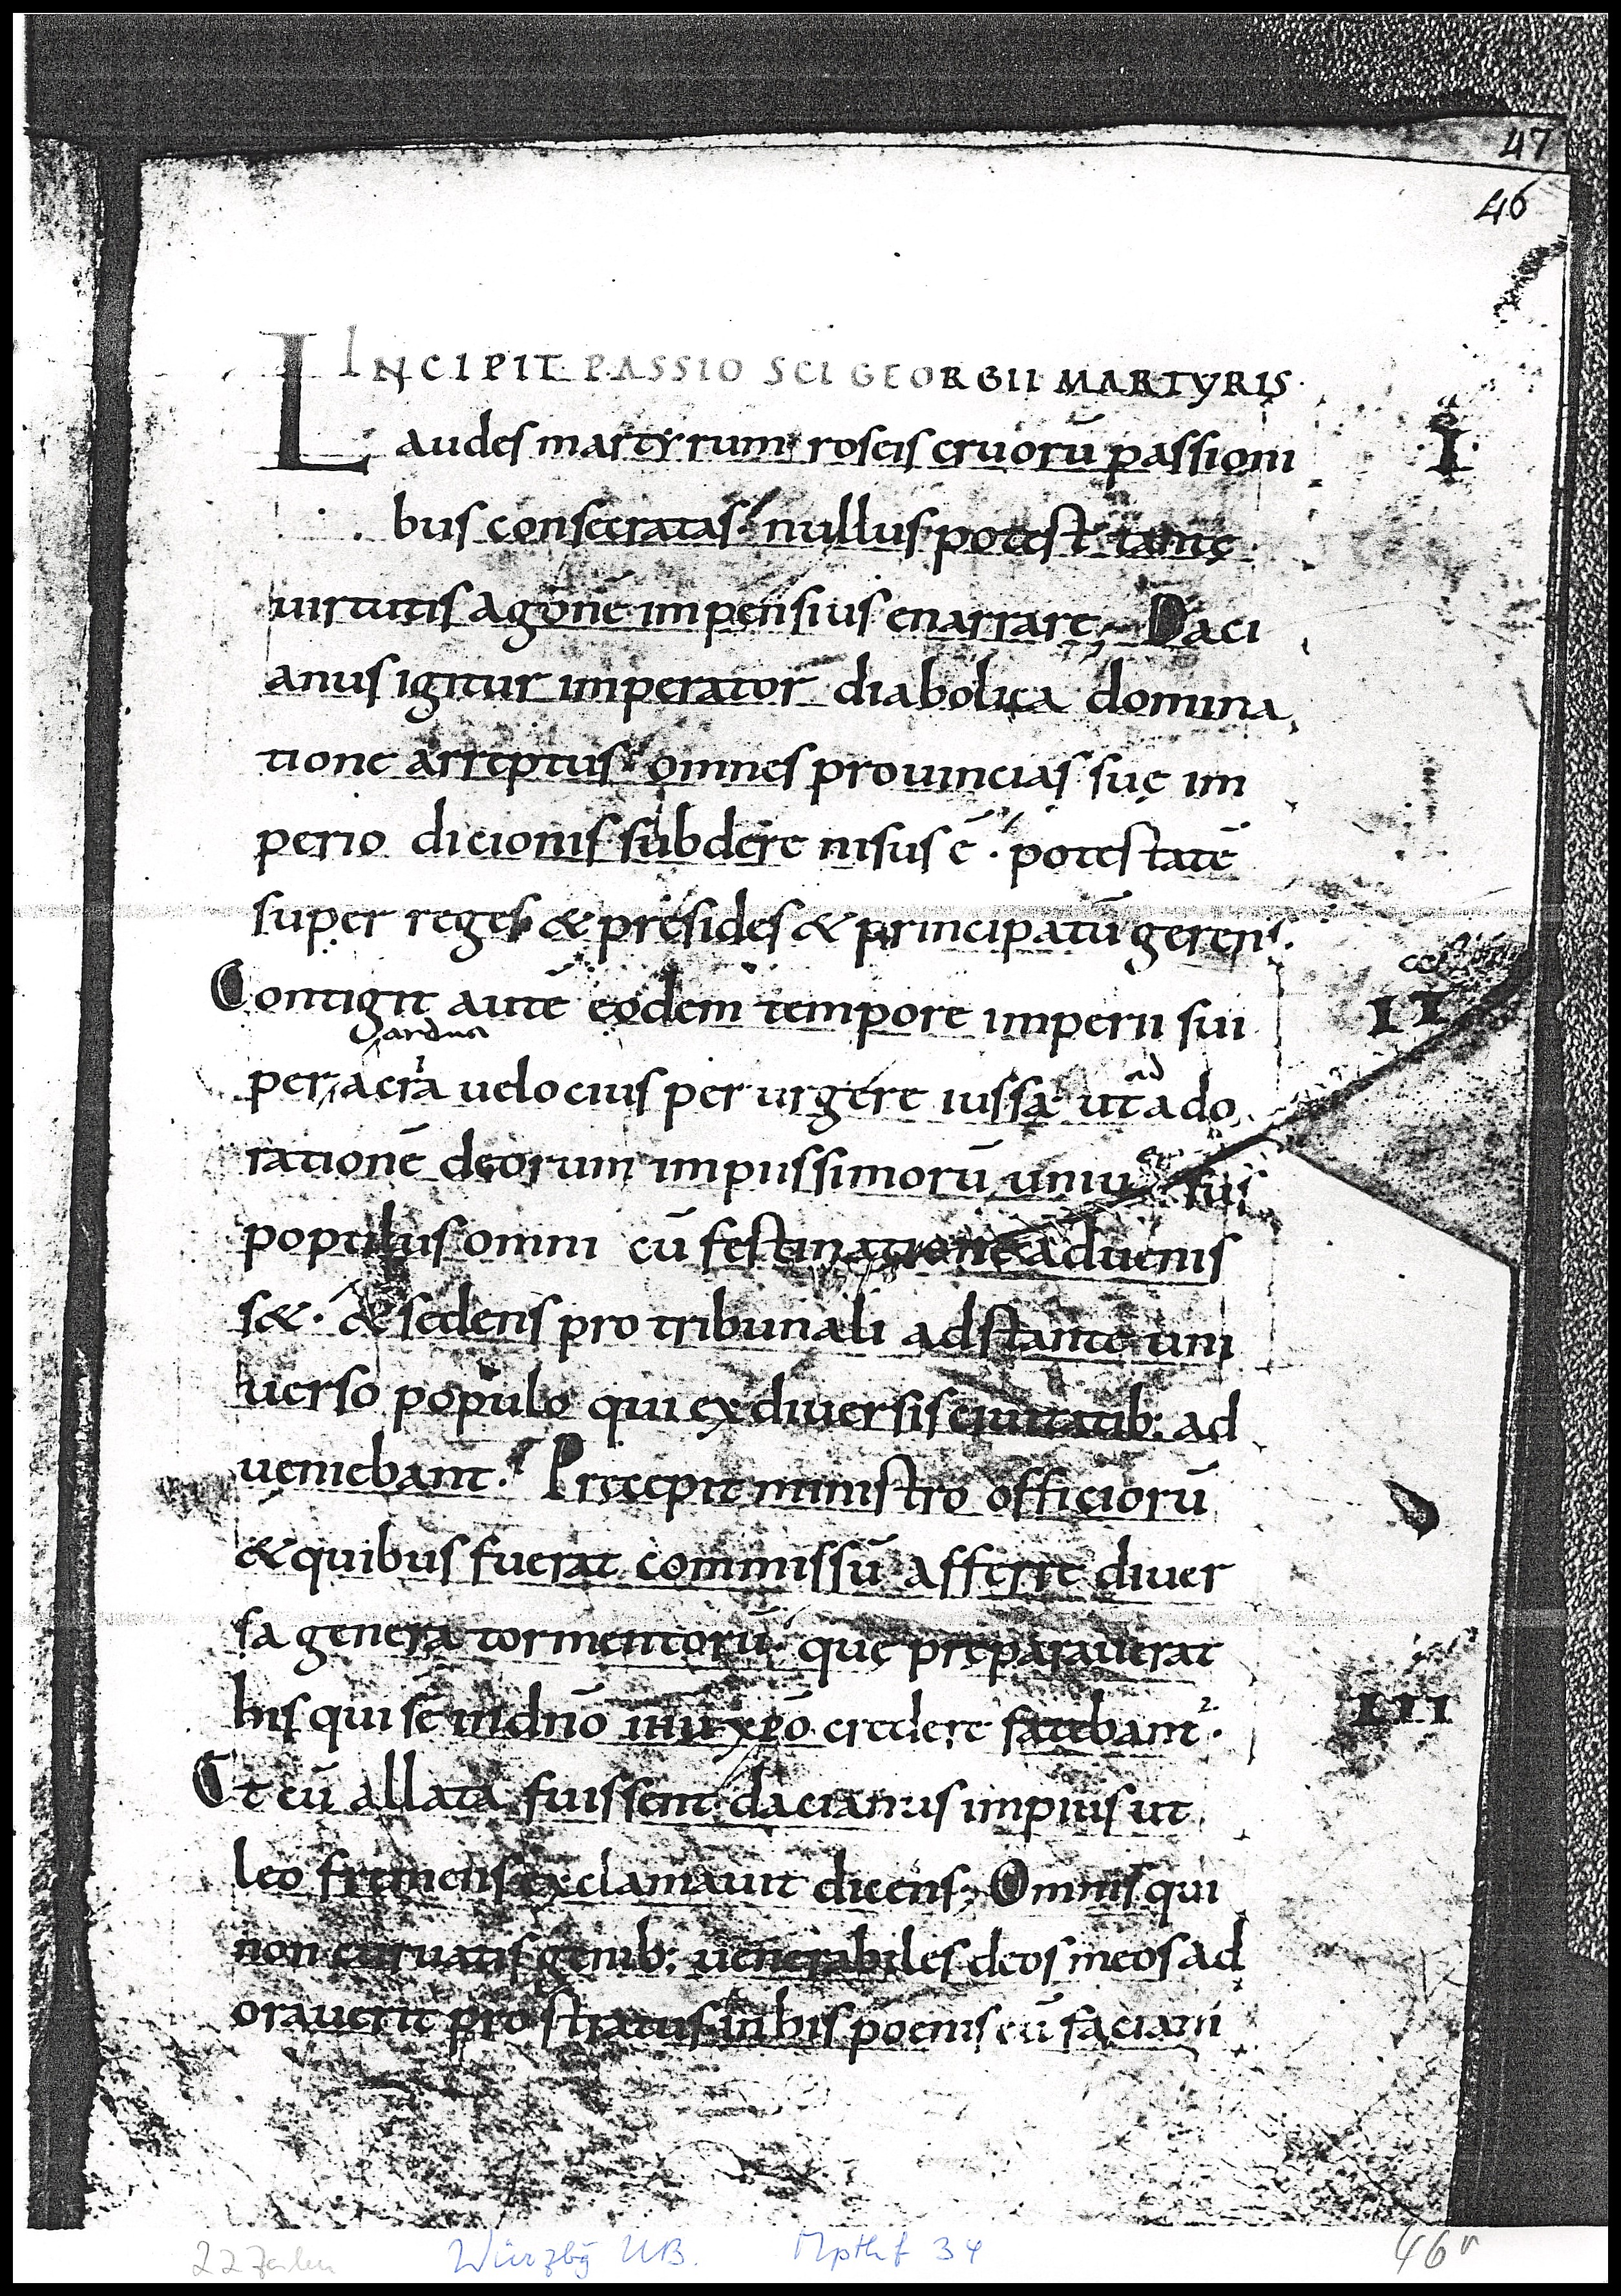 47
46
INCIPIT PASSIO SCI GEORGII MARTYRIS
Laudes martyrum roseis cruorū passioni I
bus consecratas. nullus potest tantę
uirtutis agonē impensius enarrare; Daci
anus igitur imperator diabolica domina
tione arreptus. omnes prouincias suę im
perio dicionis subdere nisus ē. potestatē
super reges & presides & principatū gerens.
Contigit autē eodem tempore imperii sui II
ardua
per acra uelocius per urgere iussa ut ado
ad
rationē deorum impiissimorū uniu sus
populus omni cū festinatione aduenis
s&. & sedens pro tribunali adstante uni
uerso populo qui ex diuersis ciuitatib: ad
ueniebant. Pręcepit ministro officiorū
& quibus fuerat commissū afferre diuer
sa genera tormentorū. quę pręparauerat
his qui se in dnō ihu xpō credere fatebant. III
Et cū allata fuissent dacianus impius ut
leo fremens exclamauit dicens; Omnis qui
non curuatis genib: uenerabiles deos meos ad
orauerit prostratus in his poenis eū faciam
22 Zeilen Würzbg UB. Mpthf 34 46r